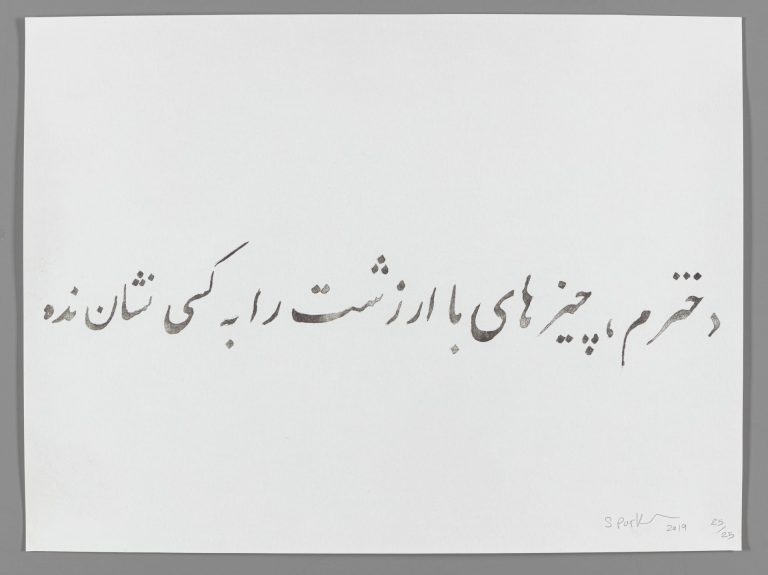 دخترم، چیزهای با ارزشت را به کسی نشان نده
2019 25/25